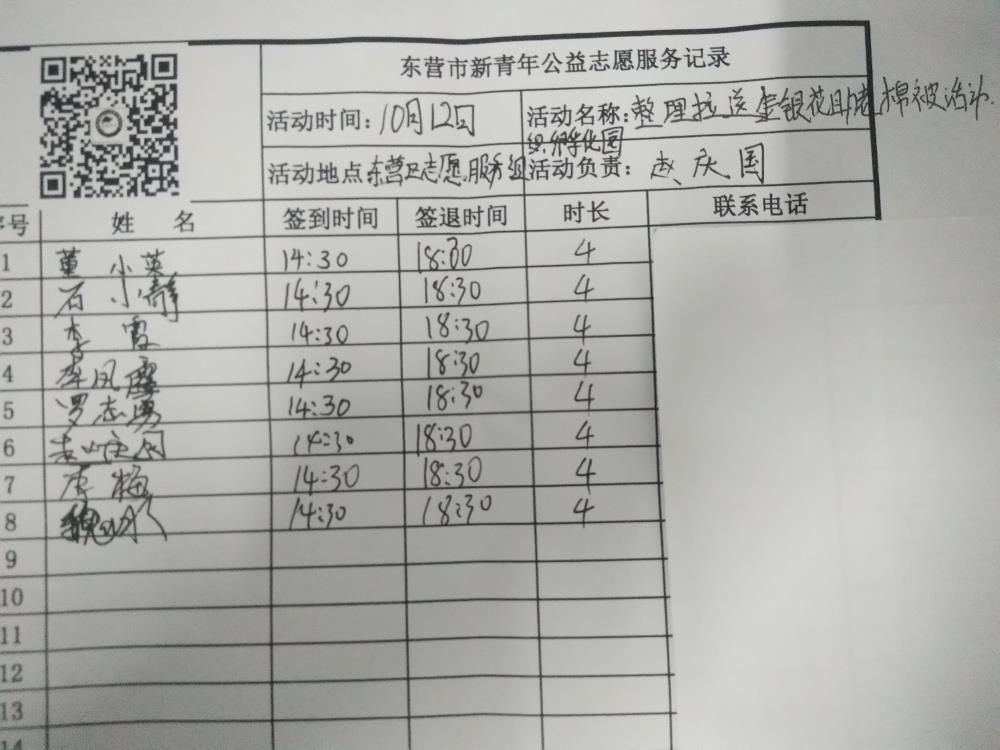 东营市新青年公益志愿服务记录
活动时间：10月12日 活动名称：整理拉送金银花助老棉被活动
活动地点 东营区志愿服务组织孵化园 活动负责：赵庆国
序号 姓 名 签到时间 签退时间 时长 联系电话
1 董小英 14:30 18:30 4
2 石小静 14:30 18:30 4
3 李霞 14:30 18:30 4
4 李凤霞 14:30 18:30 4
5 罗志勇 14:30 18:30 4
6 14:30 18:30 4
7 梅 14:30 18:30 4
8 魏 14:30 18:30 4
9
10
11
12
13
14